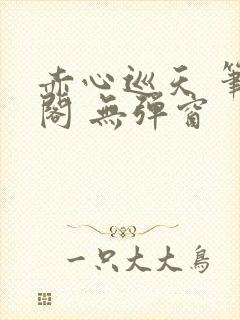 赤心巡天 筆
閣 無彈窗
一只大大鳥